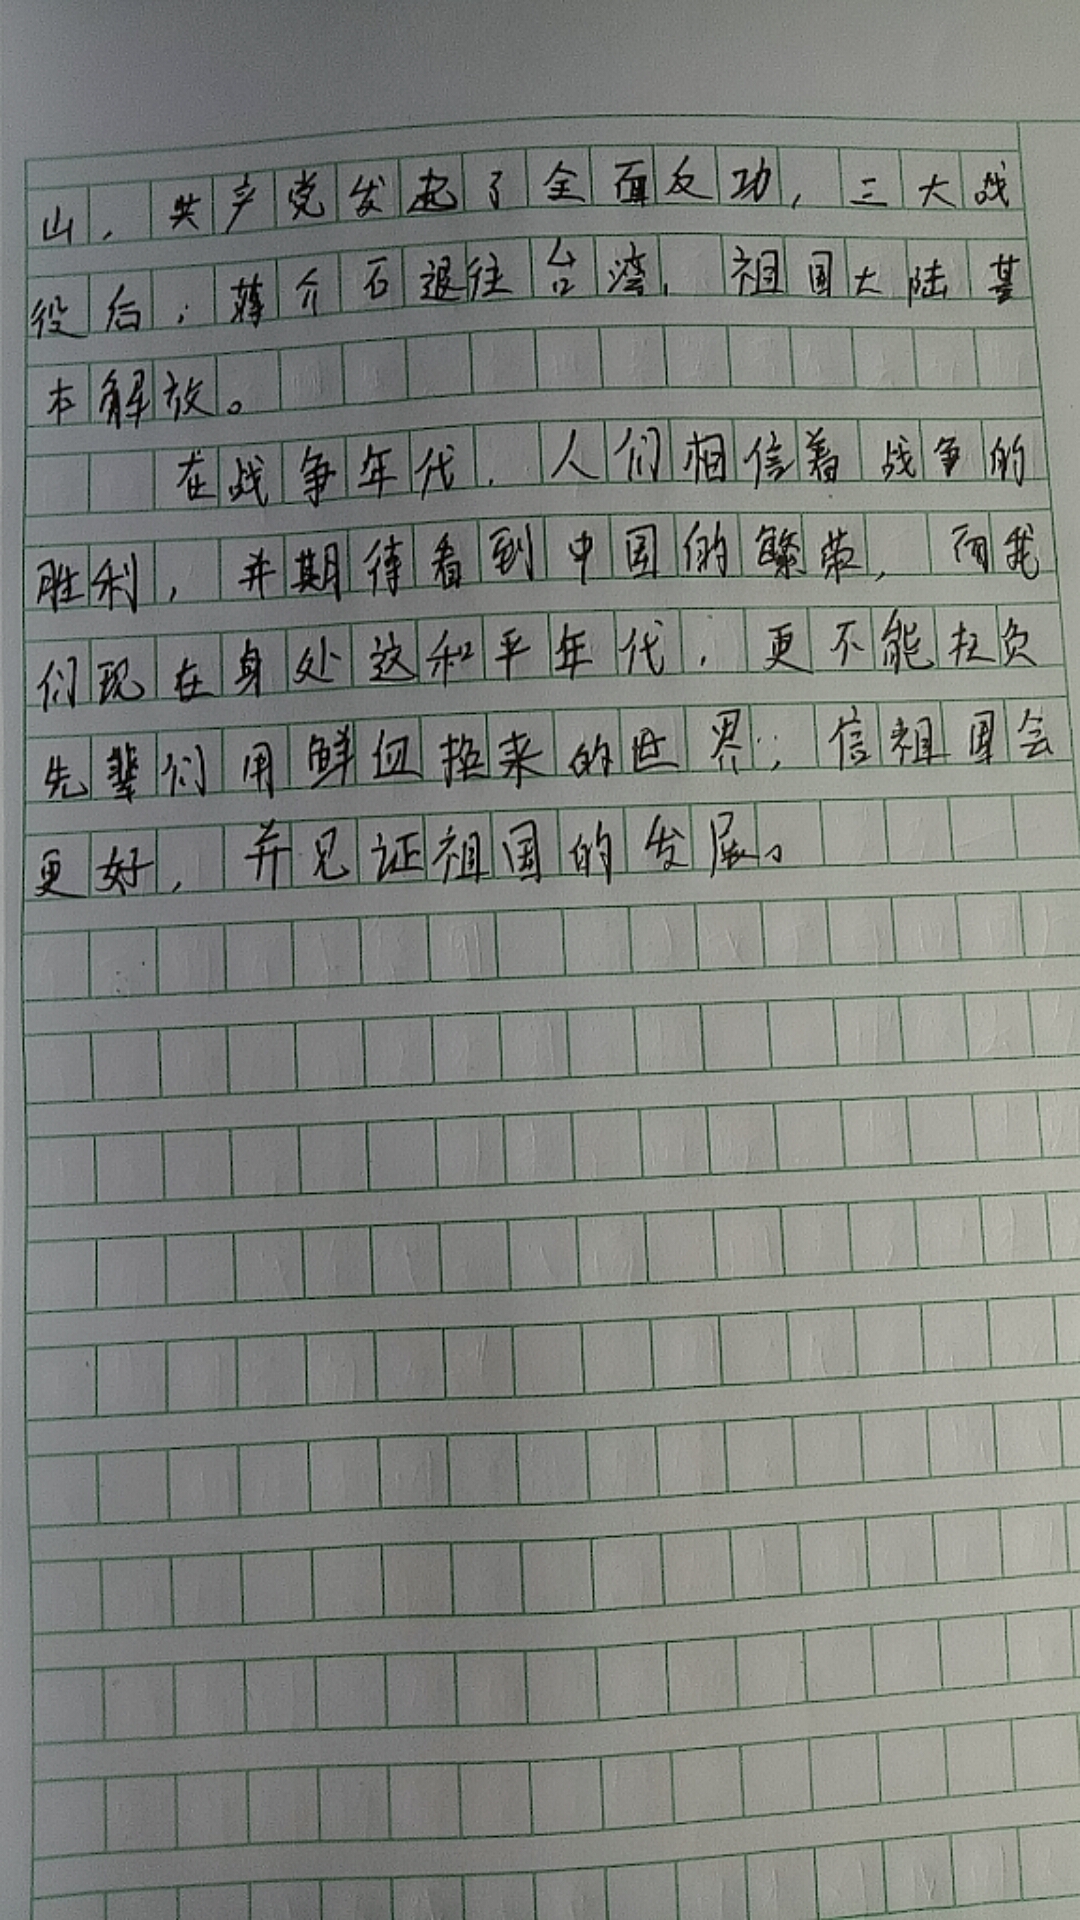 山，共产党发起了全面反功，三大战
役后，蒋介石退往台湾，祖国大陆基
本解放。
在战争年代，人们相信着战争的
胜利，并期待看到中国的繁荣，而我
们现在身处这和平年代，更不能枉负
先辈们用鲜血换来的世界，信祖国会
更好，并见证祖国的发展。